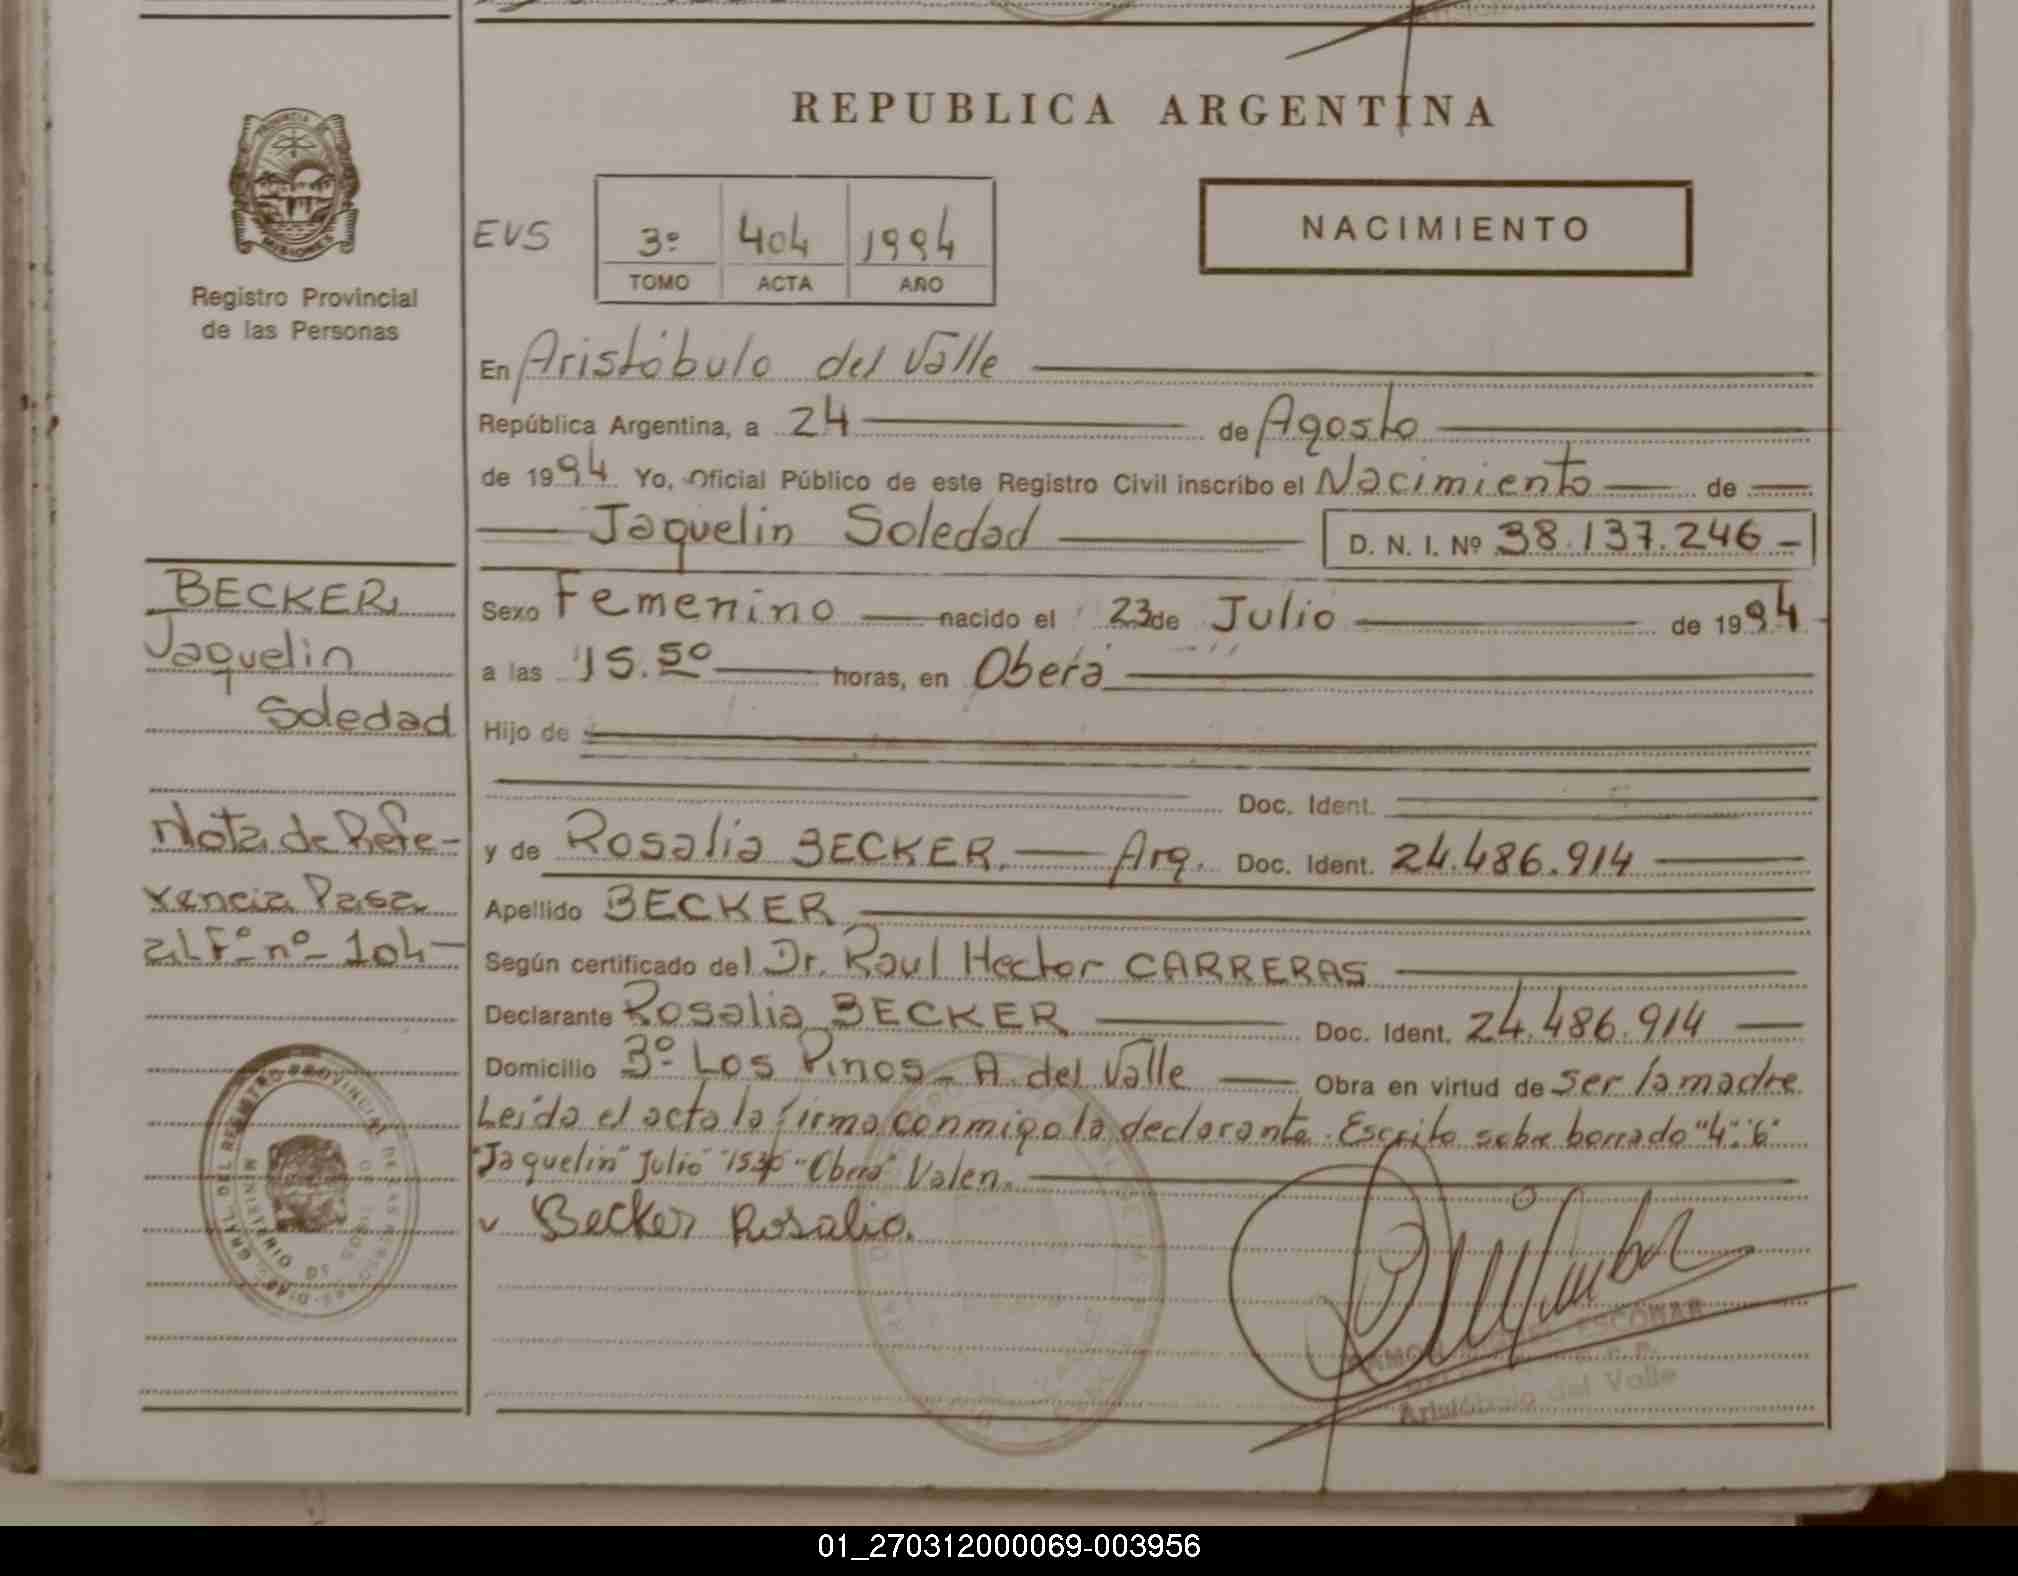 REPUBLICA ARGENTINA
PROVINCIA DE
MISIONES
Registro Provincial
de las Personas
EVS
3º 404 1994
TOMO ACTA AÑO
NACIMIENTO
En Aristóbulo del Valle
República Argentina, a 24 de Agosto
de 1994 Yo, Oficial Público de este Registro Civil inscribo el Nacimiento de
Jaquelin Soledad D. N. I. Nº 38.137.246
Sexo Femenino nacido el 23 de Julio de 1994
a las 15.50 horas, en Oberá
Hijo de
Doc. Ident.
y de Rosalia BECKER. Arg. Doc. Ident. 24.486.914
Apellido BECKER
Según certificado del Dr. Raul Hector CARRERAS
Declarante Rosalia BECKER Doc. Ident. 24.486.914
Domicilio 3º Los Pinos - A. del Valle Obra en virtud de ser la madre
Leida el acta la firma conmigo la declarante. Escrito sobre borrado "4" "6"
"Jaquelin" Julio "Oberá" Valen.
Becker Rosalia.
BECKER,
Jaquelin
Soledad
Nota de Refe-
rencia Pasa
al Fº nº 104
ESCOBAR
Aristóbulo del Valle
01_270312000069-003956